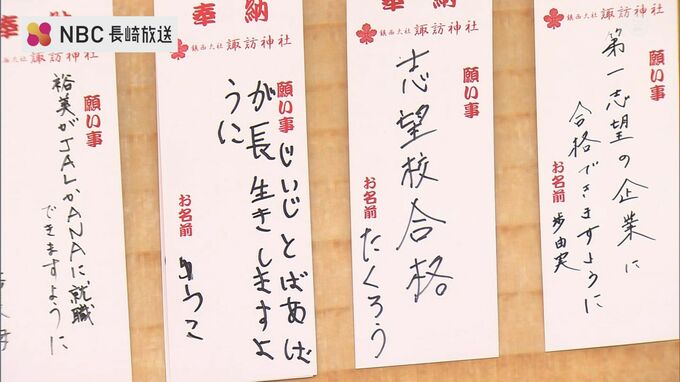 NBC 長崎放送
奉納
鎮西大社 諏訪神社
願い事
第一志望の企業に
合格できますように
お名前
歩由実
奉納
鎮西大社 諏訪神社
願い事
志望校合格。
お名前
たくろう
奉納
鎮西大社 諏訪神社
願い事
じいじとばあば
が長生きしますよ
うに
お名前
願い事
裕美がJALかANAに就職
できますように